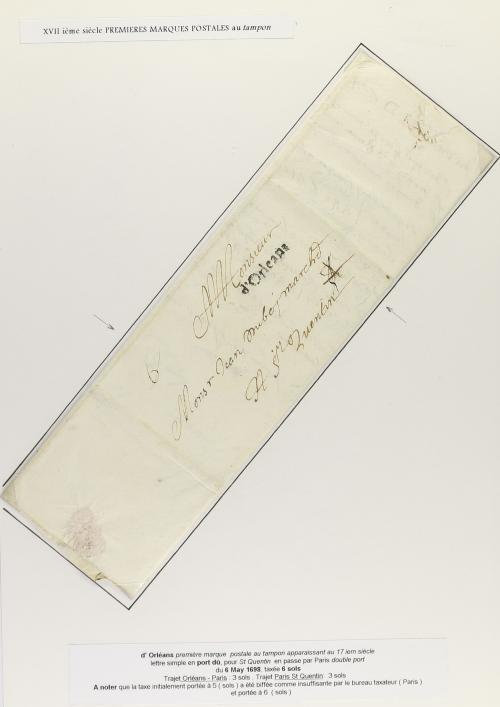 XVII ième siècle PREMIERES MARQUES POSTALES au tampon
Monsieur
d'Orleans
Monsr Jean marchd
A St Quentin
6
d' Orléans première marque postale au tampon apparaissant au 17 iem siècle
lettre simple en port dû, pour St Quentin en passe par Paris double port
du 6 May 1698, taxée 6 sols
Trajet Orléans - Paris : 3 sols . Trajet Paris St Quentin: 3 sols
A noter que la taxe initialement portée à 5 ( sols ) a été biffée comme insuffisante par le bureau taxateur ( Paris )
et portée à 6 ( sols )